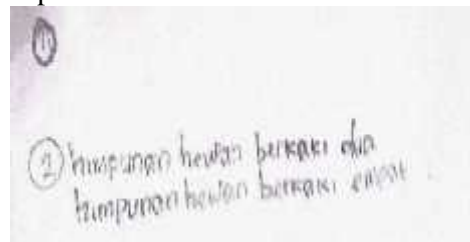 ①
② himpunan hewan berkaki dua
himpunan hewan berkaki empat